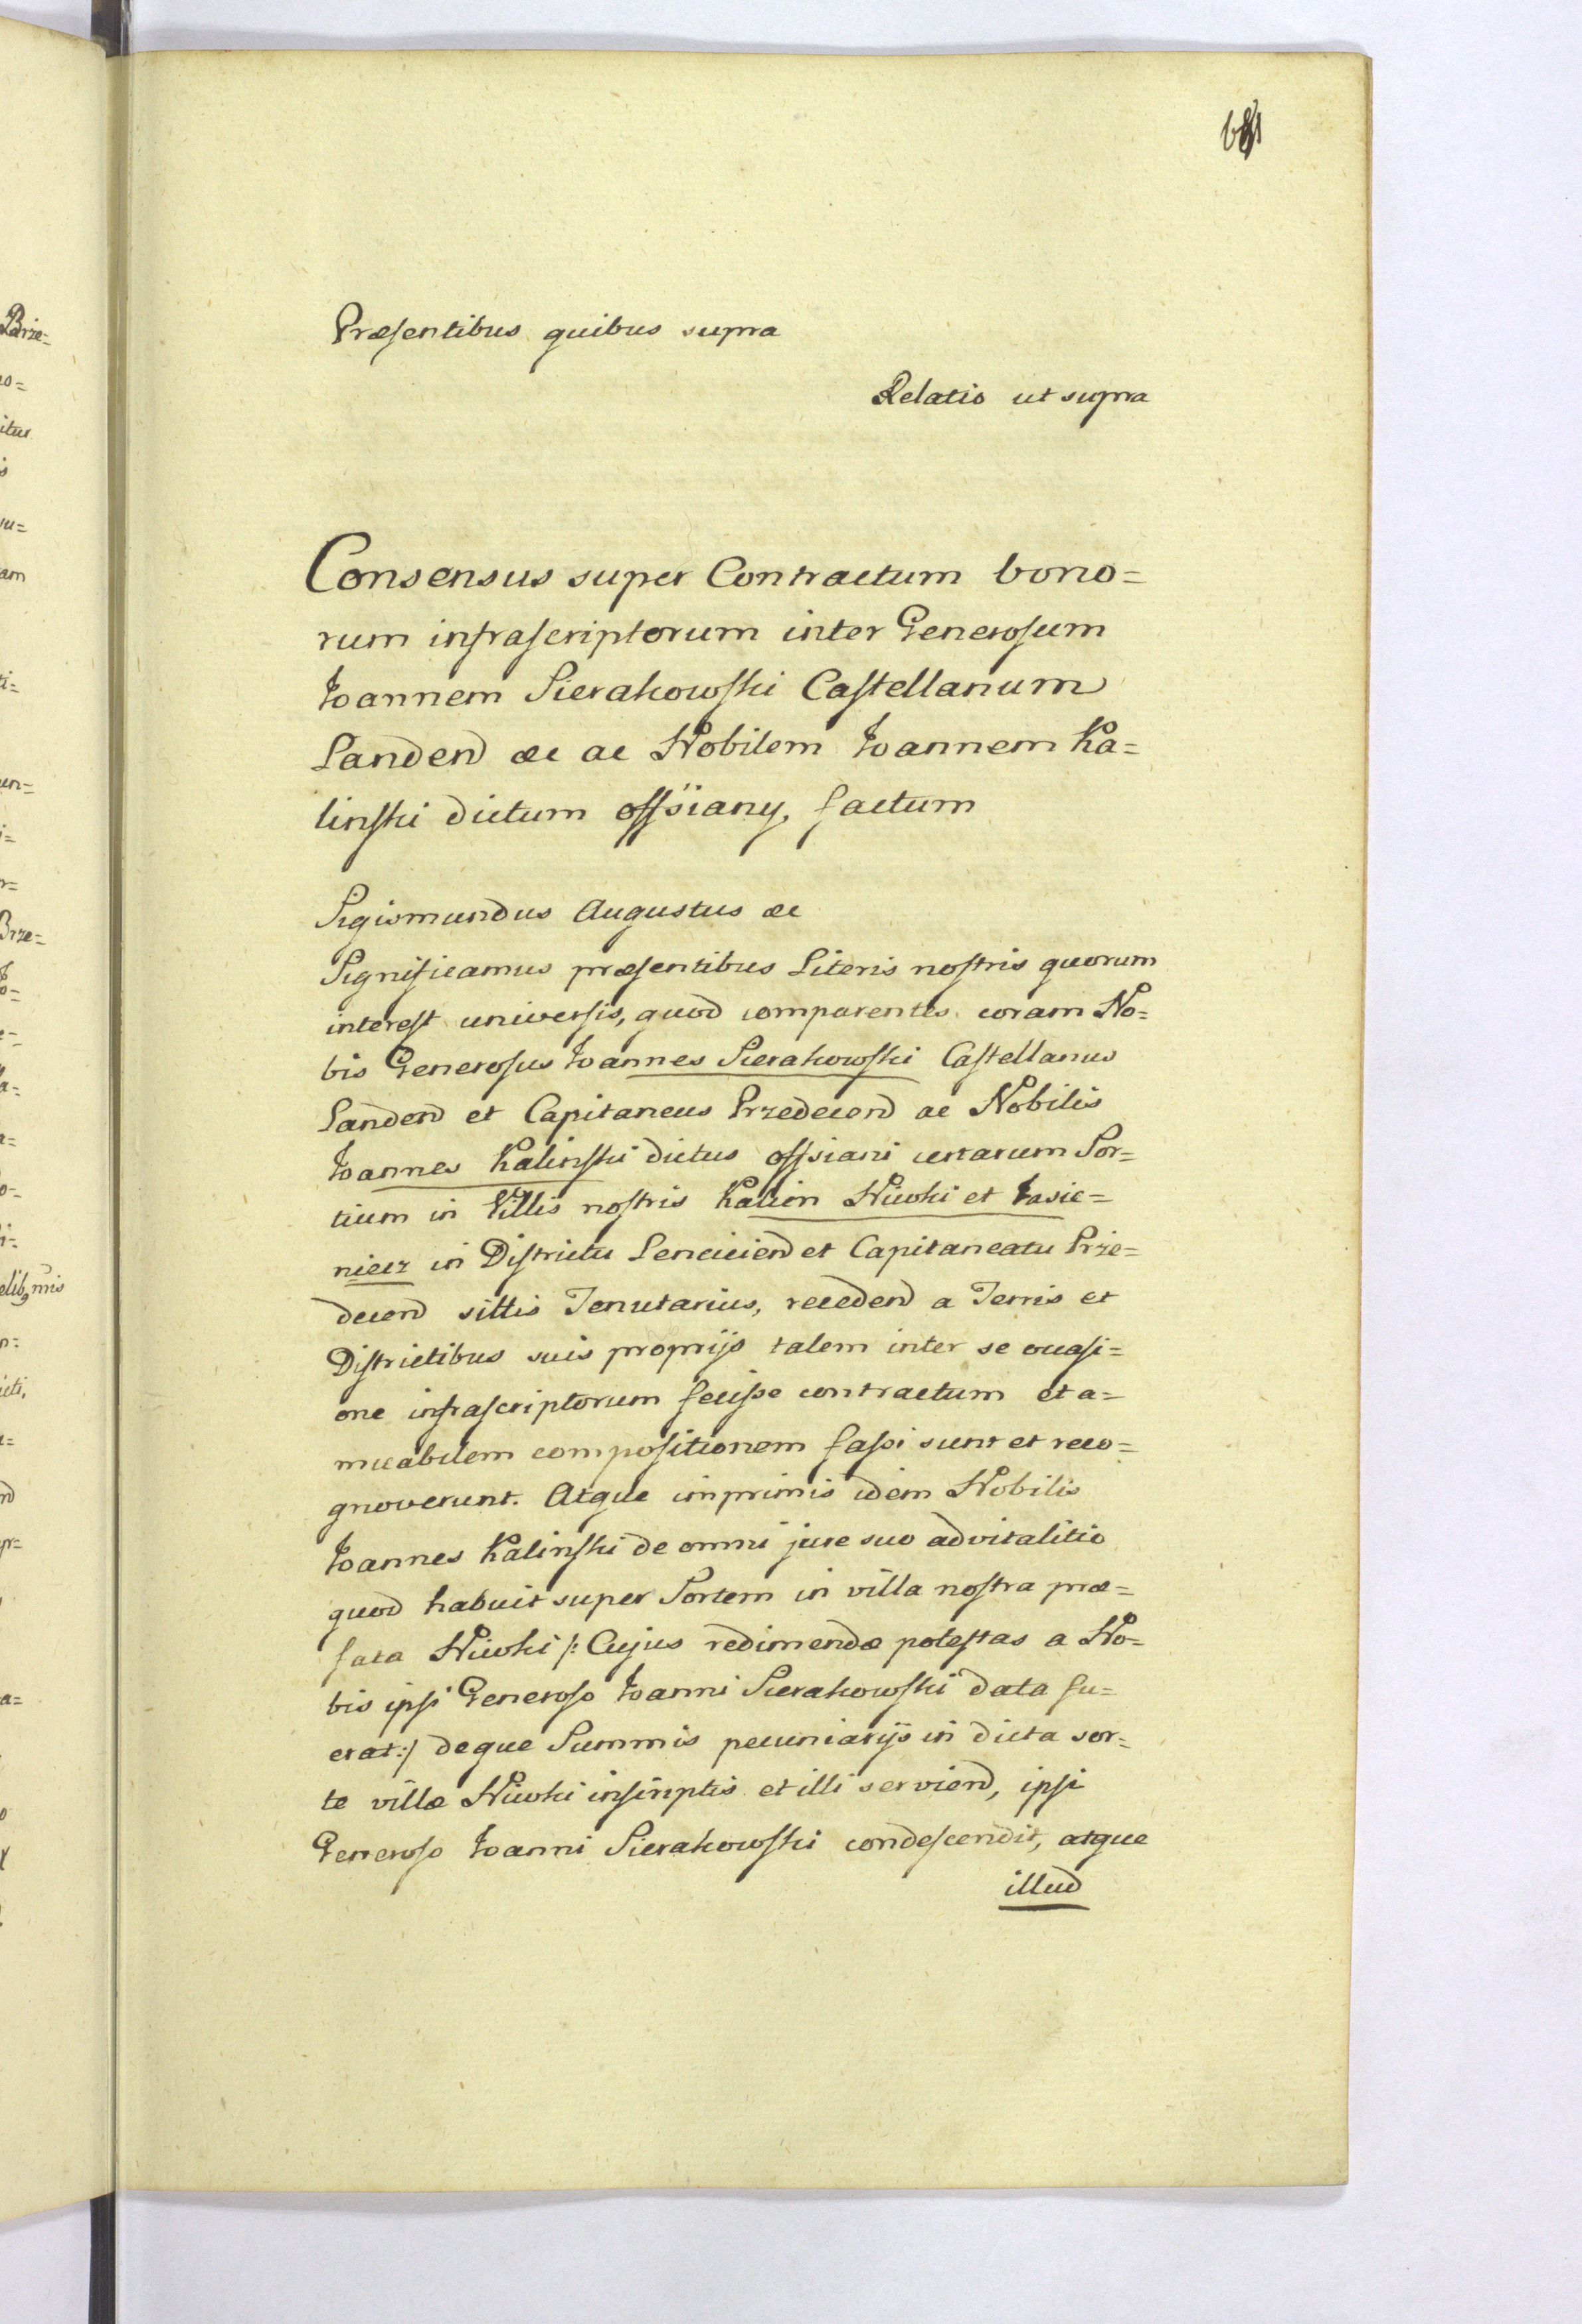 Præsentibus quibus supra
Relatio ut supra
Consensus super Contractum bono=
rum infrascriptorum inter Generosum
Ioannem Sierakowski Castellanum
Landen æc ac Nobilem Ioannem Ka=
linski dictum ossiany, factum
Sigismundus Augustus æc
Significamus præsentibus Literis nostris quorum
interest universis, quod comparentes coram No=
bis Generosus Ioannes Sierakowski Castellanus
Landen et Capitaneus Przedecen ac Nobilis
Ioannes Kalinski dictus ossiani certarum Sor=
tium in Villis nostris Kalien Niwki et Iasie=
niecz in Districtu Lencicien et Capitaneatu Prze=
decen sittis Tenutarius, receden a Terris et
Districtibus suis proprijs talem inter se occasi=
one infrascriptorum fecisse contractum et a=
micabilem compositionem fassi sunt et reco=
gnoverunt. Atque imprimis idem Nobilis
Ioannes Kalinski de omni jure suo advitalitio
quod habuit super Sortem in villa nostra præ=
fata Niwki /: Cujus redimendæ potestas a No=
bis ipsi Generoso Ioanni Sierakowski data fu=
erat :/ deque Summis pecuniarijs in dicta sor=
te villæ Niwki inscriptis et illi servien, ipsi
Generoso Ioanni Sierakowski condescendit, atque
illud